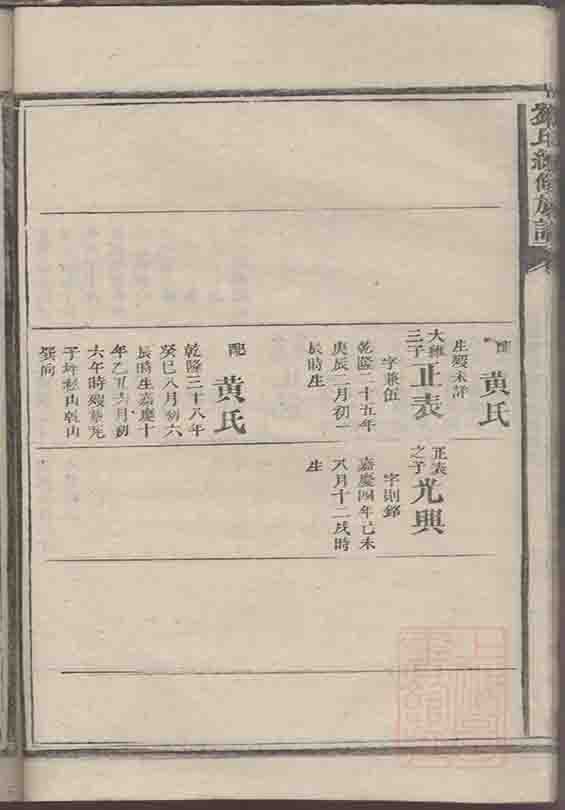 氏續修族譜
配 黄氏
生歿未詳
三子 正表
字兼伍
乾隆二十五年
庚辰二月初一
辰時生
配 黄氏
乾隆三十八年
癸巳八月初六
辰時生嘉慶十
年乙丑六月初
六午時歿葬
子坪山乾山
巽向
正表之子 光興
字則
嘉慶四年己未
八月十二戌時
生